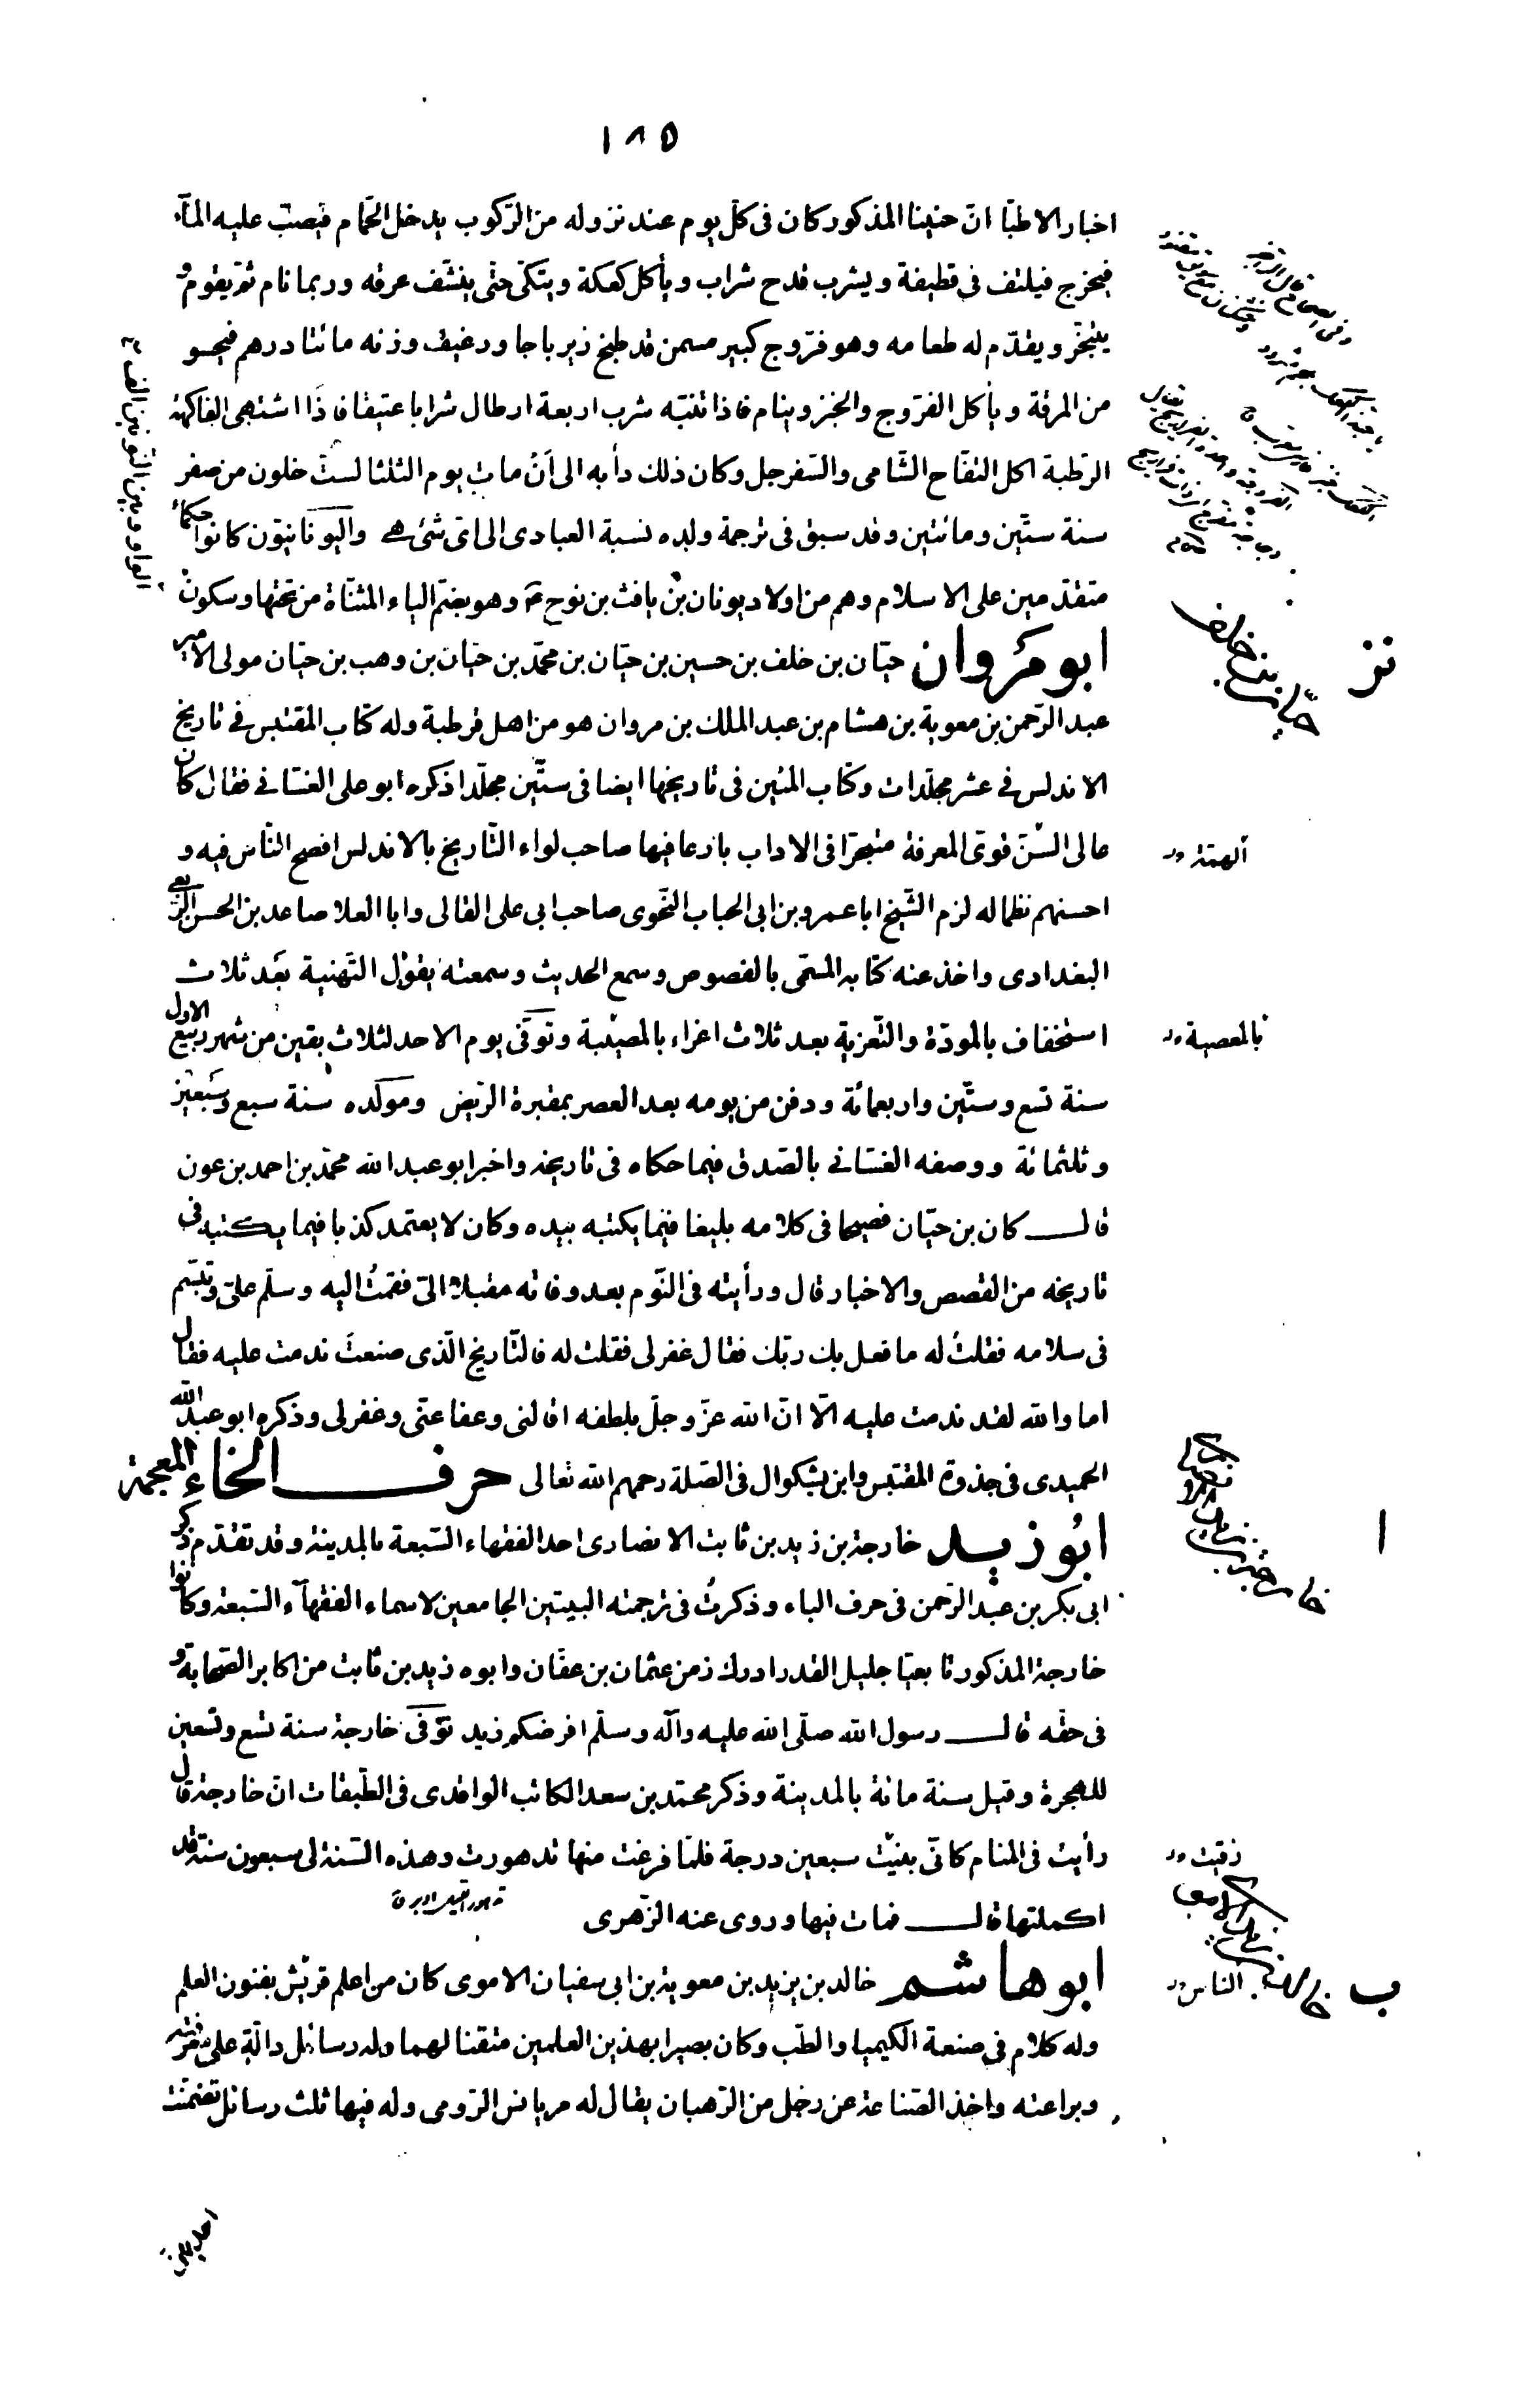 ١٨٥
اخبار الاطبّا انّ حنينا المذكور كان فى كلّ يوم عند نزوله من الرّكوب يدخل الحمّام فيصبّ عليه المآء
فيخرج فيلتف فى قطيفة ويشرب قدح شراب ويأكل كعكة ويتكّى حتّى ينشّف عرقه وربما نام ثمّ يقوم و
يتبخّر ويقدّم له طعامه وهو فرّوج كبير مسمن قد طبخ زيرباجا ورغيف وزنه مائتا درهم فيحسو
من المرقة ويأكل الفرّوج والخبز وينام فاذا تنبّه شرب اربعة ارطال شرابا عتيقا فاذا اشتهى الفاكهة
الرّطبة اكل التفّاح الشّامى والسّفرجل وكان ذلك دأبه الى أنْ مات يوم الثلثا لستّ خلون من صفر
سنة ستّين ومائتين وقد سبق فى ترجمة ولده نسبة العبادى الى اىّ شئ هے واليونانيّون كانوا حكمآء
متقدّمين على الاسلام وهم من اولاد يونان بن يافث بن نوح عم وهو بضمّ الياء المثنّاة من تحتها وسكون
الواو وبين النّونين الف
ابو مروان حيّان بن خلف بن حسين بن حيّان بن محمّد بن حيّان بن وهب بن حيّان مولى الامير
عبد الرّحمن بن معوية بن هشام بن عبد الملك بن مروان هو من اهل قرطبة وله كتاب المقتبس فے تاريخ
الاندلس فے عشر مجلّدات وكتاب المتين فى تاريخها ايضا فى ستّين مجلّدا ذكره ابو على الغسّانے فقال كان
عالى السّنّ قوىّ المعرفة متبحّرا فى الاداب بارعا فيها صاحب لواء التّاريخ بالاندلس افصح النّاس فيه و
الهمّة
احسنهم نظما له لزم الشّيخ ابا عمرو بن ابى الحباب النّحوى صاحب ابى على القالى وابا العلا صاعد بن الحسن الربعى
البغدادى واخذ عنه كتابه المسمّى بالفصوص وسمع الحديث وسمعته يقول التّهنية بعد ثلاث
استخفاف بالمودّة والتّعزية بعد ثلاث اغراء بالمصيبة وتوفّى يوم الاحد لثلاث بقين من شهر ربيع الاول
بالمعصية
سنة تسع وستّين واربعمائة ودفن من يومه بعد العصر بمقبرة الرّبض ومولده سنة سبع وسبعين
وثلثمائة ووصفه الغسّانے بالصّدق فيما حكاه فى تاريخه واخبر ابو عبد الله محمّد بن احمد بن عون
قال كان بن حيّان فصيحا فى كلامه بليغا فيما يكتبه بيده وكان لا يعتمد كذبا فيما يكتبه فى
تاريخه من القصص والاخبار قال ورأيته فى النّوم بعد وفاته مقبلا الىّ فقمتُ اليه وسلّم علىّ وتبسّم
فى سلامه فقلتُ له ما فعل بك ربّك فقال غفر لى فقلت له فالتّاريخ الّذى صنعتَ ندمت عليه فقال
اما والله لقد ندمت عليه الّا انّ الله عزّ وجلّ بلطفه اقالنى وعفا عنّى وغفر لى وذكره ابو عبد الله
الحميدى فى جذوة المقتبس وابن بشكوال فى الصّلة رحمهم الله تعالى حرف الخاء المعجمة
ابو زيد خارجة بن زيد بن ثابت الانصارى احد الفقهاء السّبعة بالمدينة وقد تقدّم ذكر
ابى بكر بن عبد الرّحمن فى حرف الباء وذكرتُ فى ترجمته البيتين الجامعين لاسماء الفقهآء السّبعة وكانوا
خارجة المذكور تابعيّا جليل القدر ادرك زمن عثمان بن عفّان وابوه زيد بن ثابت من اكابر الصّحابة و
فى حقّه قال رسول الله صلّى الله عليه وآله وسلّم افرضكم زيد توفّى خارجة سنة تسع وتسعين
للهجرة وقيل سنة مائة بالمدينة وذكر محمّد بن سعد الكاتب الواقدى فى الطّبقات انّ خارجة قال
رأيت فى المنام كانّى بنيْت سبعين درجة فلمّا فرغت منها تدهورت وهذه السّنة لى سبعون سنة قد
اكملتها قال فمات فيها وروى عنه الزّهرى
ابو هاشم خالد بن يزيد بن معوية بن ابى سفيان الاموى كان من اعلم قريش بفنون العلم
ب
الناس
وله كلام فى صنعة الكيميا والطّب وكان بصيرا بهذين العلمين متقنا لهما وله رسائل دالّة على معرفته
وبراعته واخذ الصّناعة عن رجل من الرّهبان يقال له مريانس الرّومى وله فيها ثلث رسائل تضمّنت